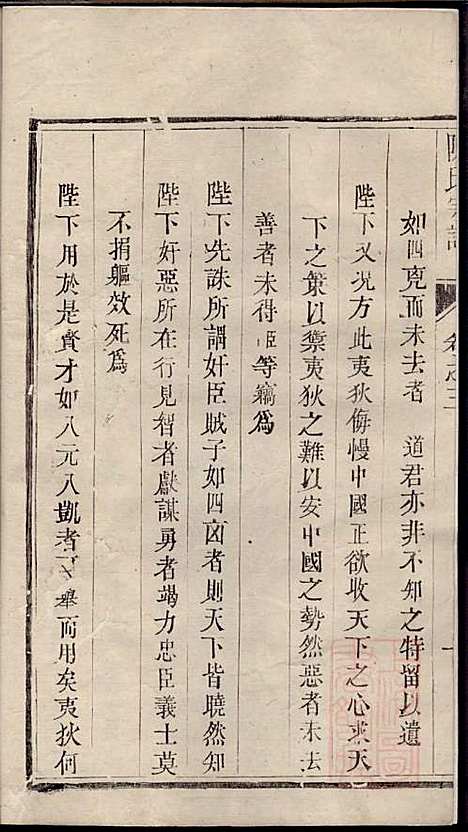 陳氏宗譜
卷之三
如四兇而未去者 道君亦非不知之特留以遺
陛下又況方此夷狄侮慢中國正欲收天下之心求天
下之策以禦夷狄之難以安中國之勢然惡者未去
善者未得臣等竊為
陛下先誅所謂奸臣賊子如四凶者則天下皆曉然知
陛下奸惡所在行見智者獻謀勇者竭力忠臣義士莫
不捐軀效死為
陛下用於是賢才如八元八凱者 舉而用矣夷狄何